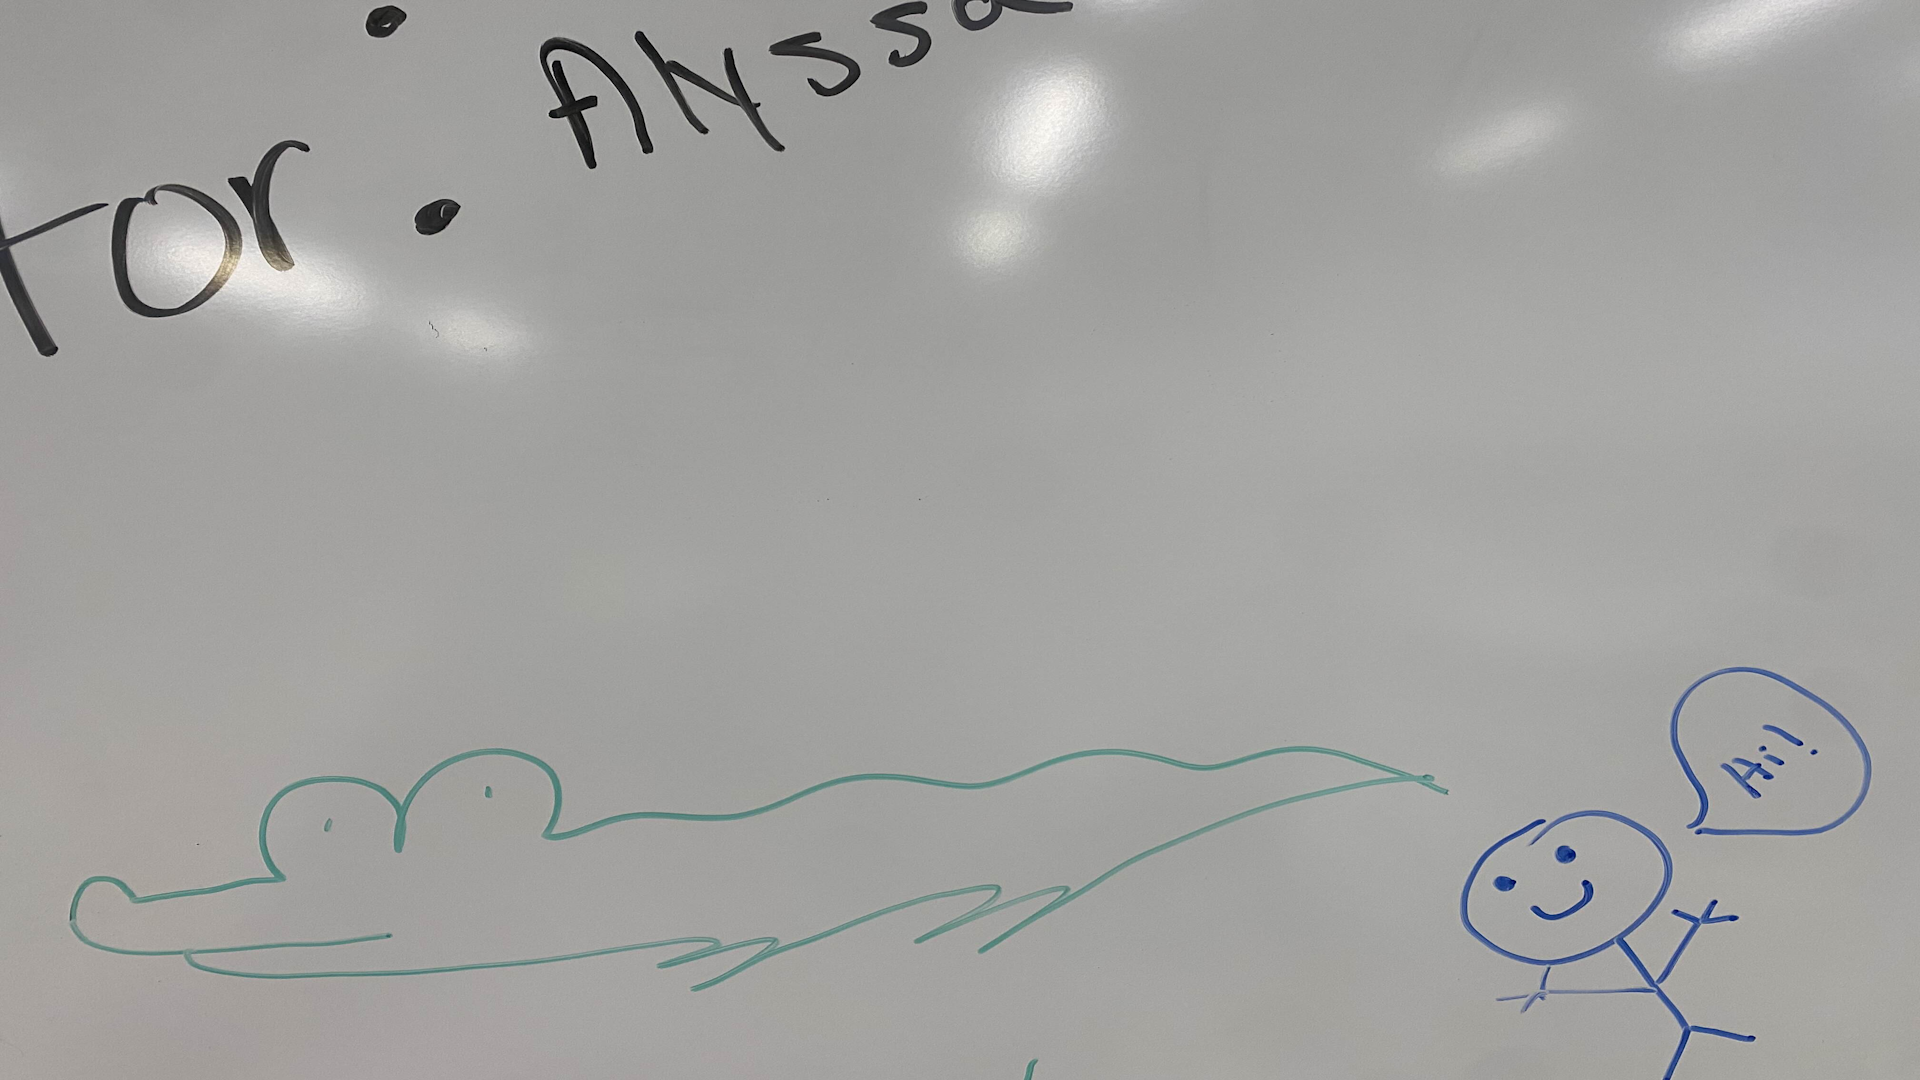 For: Alyssa
Hi!